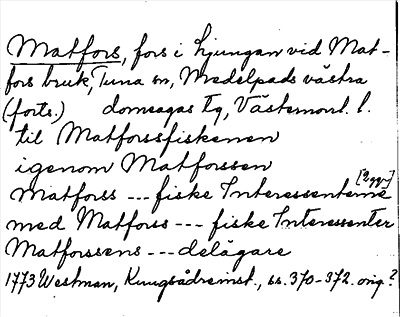 Matfors, fors i Ljungan vid Mat-
fors bruk, Tuna sn, Medelpads västra
(forts.) domsagas Tg, Västernorrl. l.
til Matforssfiskenen
igenom Matforssen
[2 ggr]
Matforss --- fiske Interessenterne
med Matforss --- fiske Interessenter
Matforssens --- delägare
1773 Westman, Kungsådreinst., ss. 370-372. orig.?